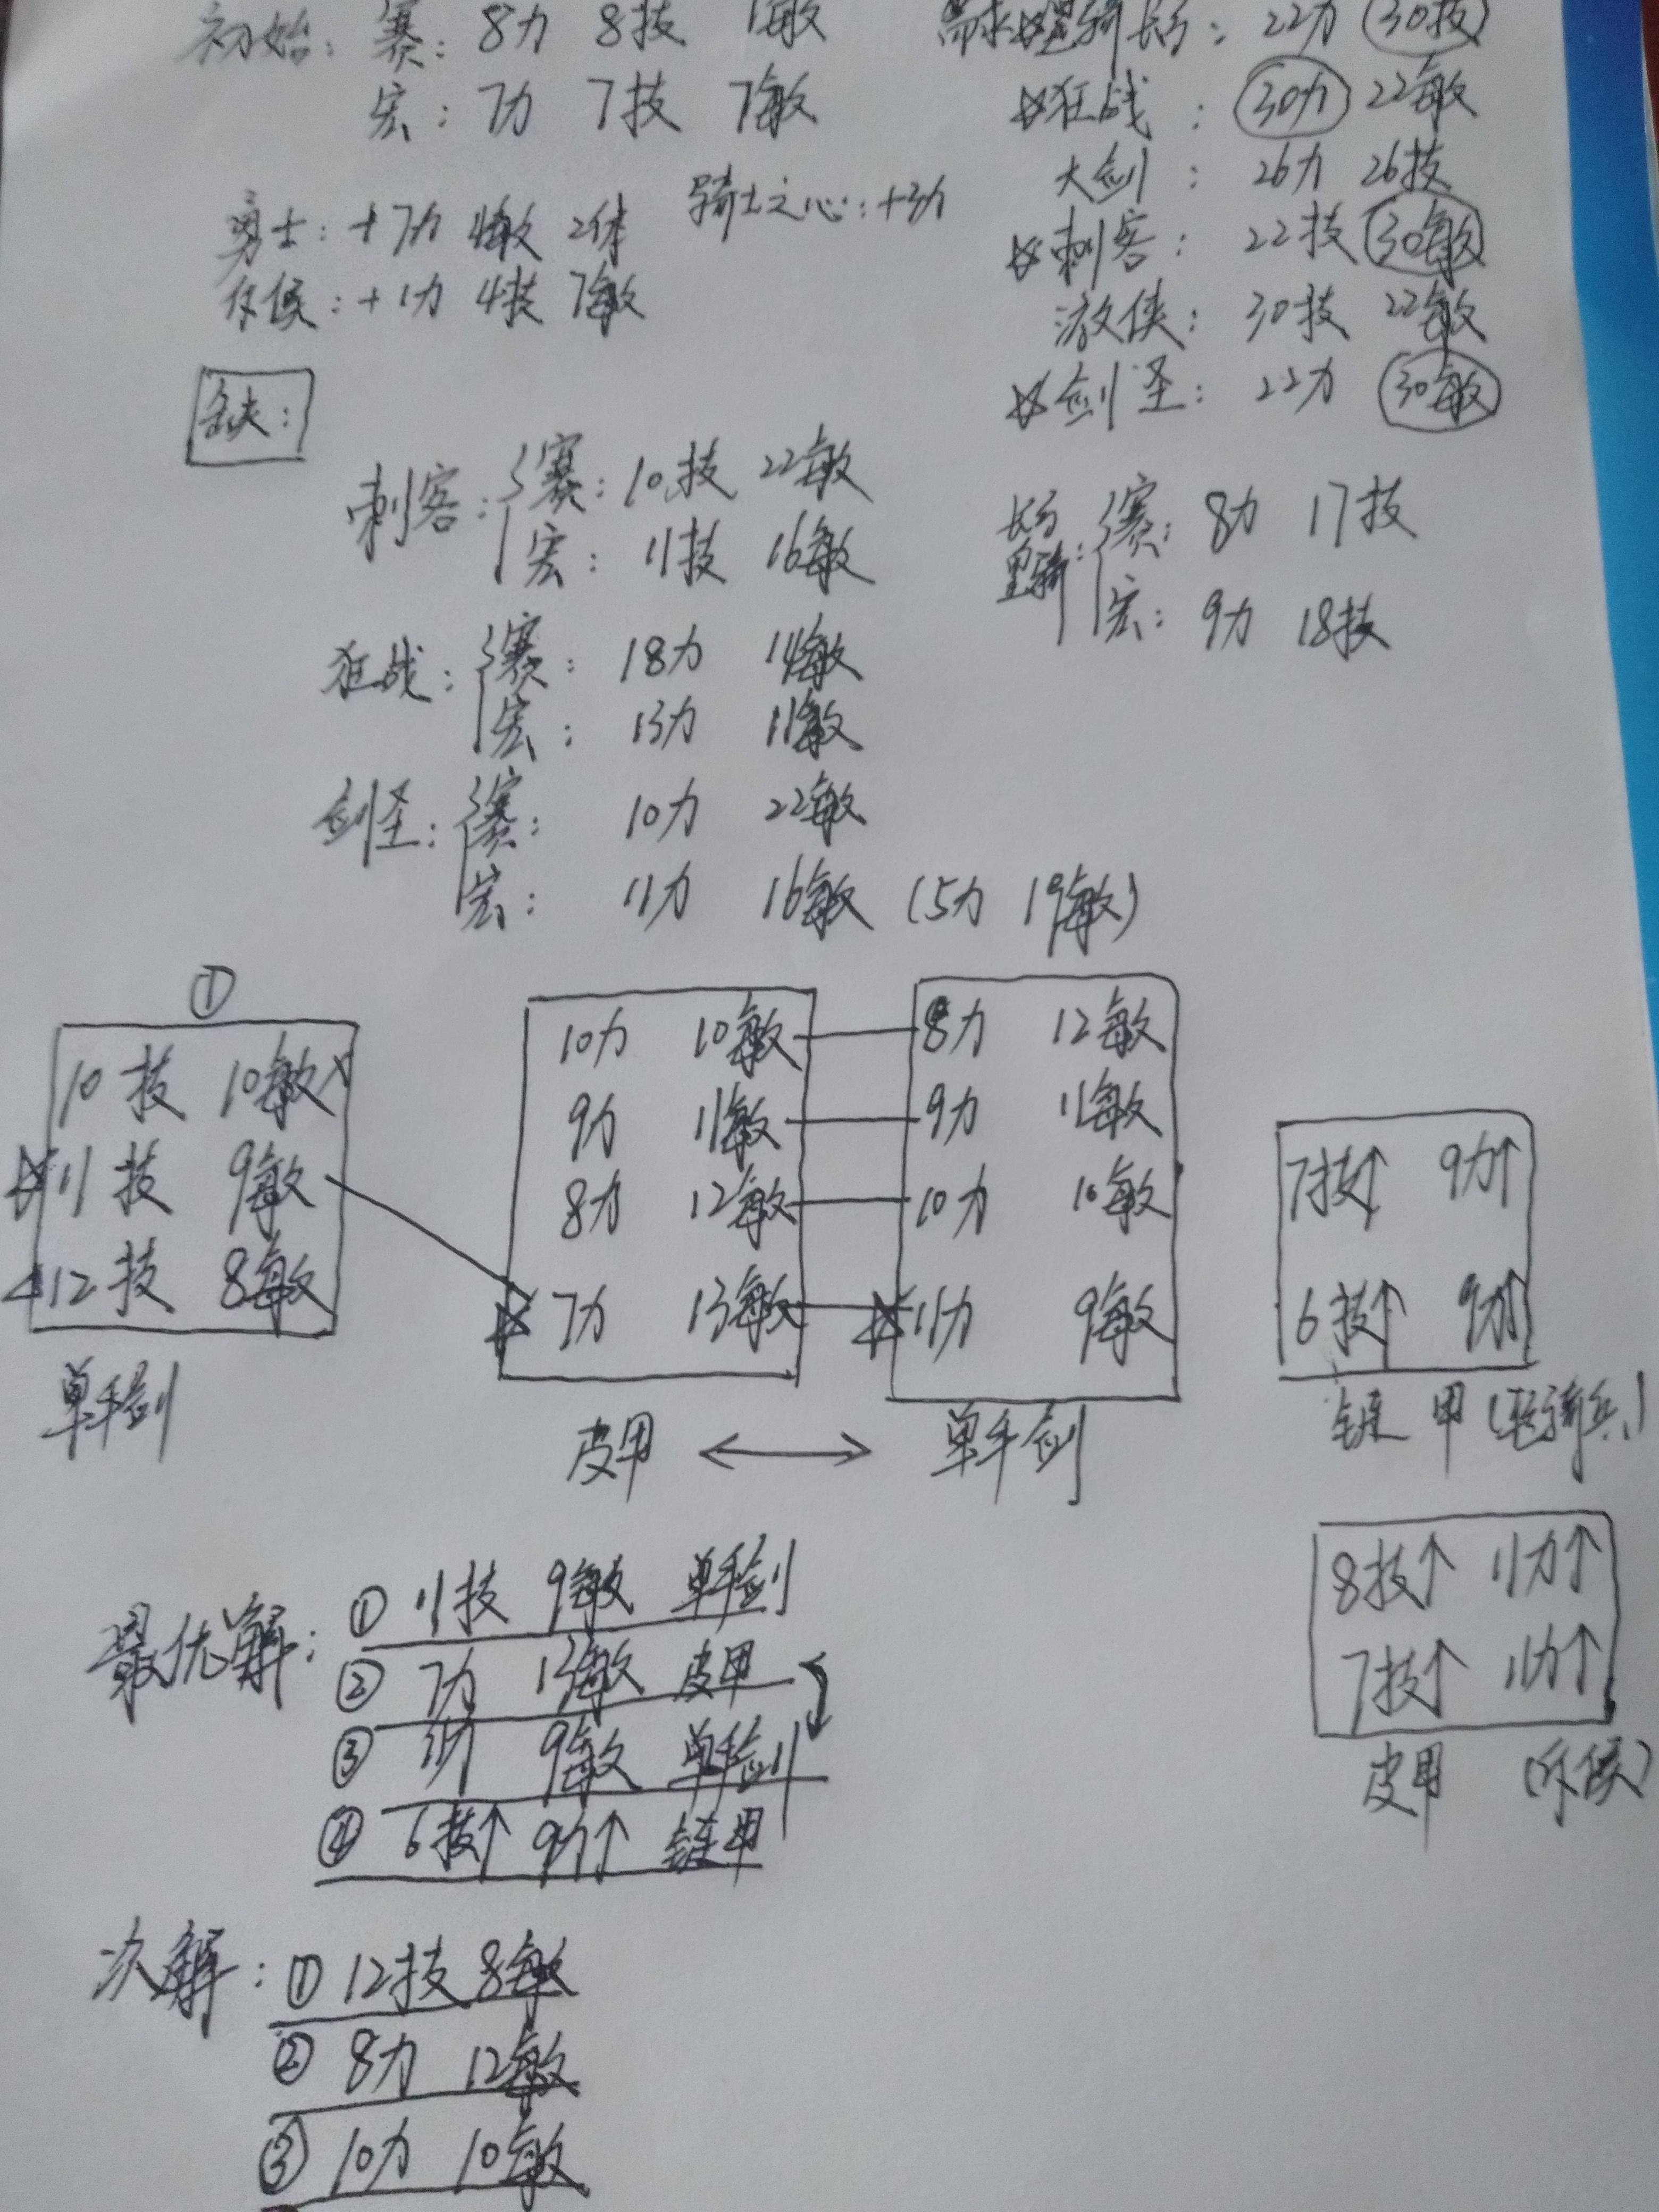 初始: 赛: 8力 8技 1敏
宏: 7力 7技 7敏
勇士: +7力 4敏 2体
骑士之心: +3力
斥候: +1力 4技 7敏
需求: 重骑 长弓: 22力 30技
狂战: 30力 22敏
大剑: 26力 26技
刺客: 22技 30敏
游侠: 30技 22敏
剑圣: 22力 30敏
缺:
刺客: 赛: 10技 22敏
宏: 11技 16敏
狂战: 赛: 18力 14敏
宏: 13力 11敏
剑圣: 赛: 10力 22敏
宏: 11力 16敏 (5力 19敏)
长弓 重骑: 赛: 8力 17技
宏: 9力 18技
①
10技 10敏
11技 9敏
12技 8敏
单手剑
10力 10敏
9力 11敏
8力 12敏
7力 13敏
皮甲
8力 12敏
9力 11敏
10力 10敏
11力 9敏
单手剑
7技↑ 9力↑
6技↑ 9力↑
链甲 (轻骑兵)
8技↑ 11力↑
7技↑ 11力↑
皮甲 (斥候)
最优解: ① 11技 9敏 单手剑
② 7力 13敏 皮甲
③ 11力 9敏 单手剑
④ 6技↑ 9力↑ 链甲
次解: ① 12技 8敏
② 8力 12敏
③ 10力 10敏